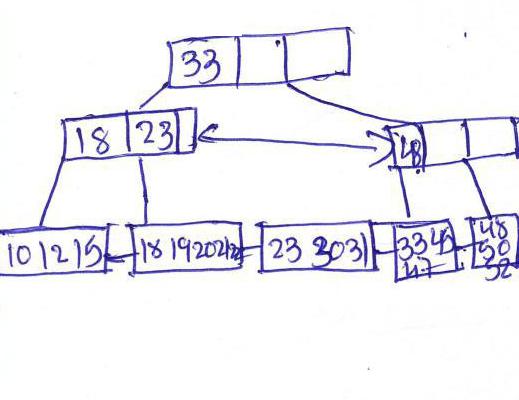 33
18 23
48
10 12 15
18 19 20 21 22
23 30 31
33 45
47
48
50
52